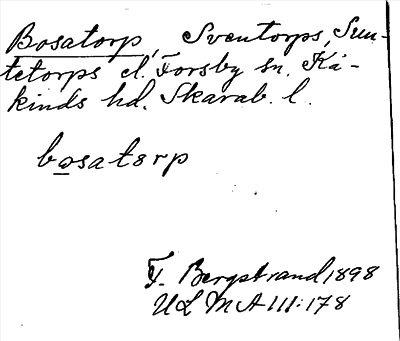 Bosatorp, Sventorps, Sun-
tetorps el. Forsby sn. Kå-
kinds hd. Skarab. l.
bosatorp
F. Bergstrand 1898
ULMA 111:178